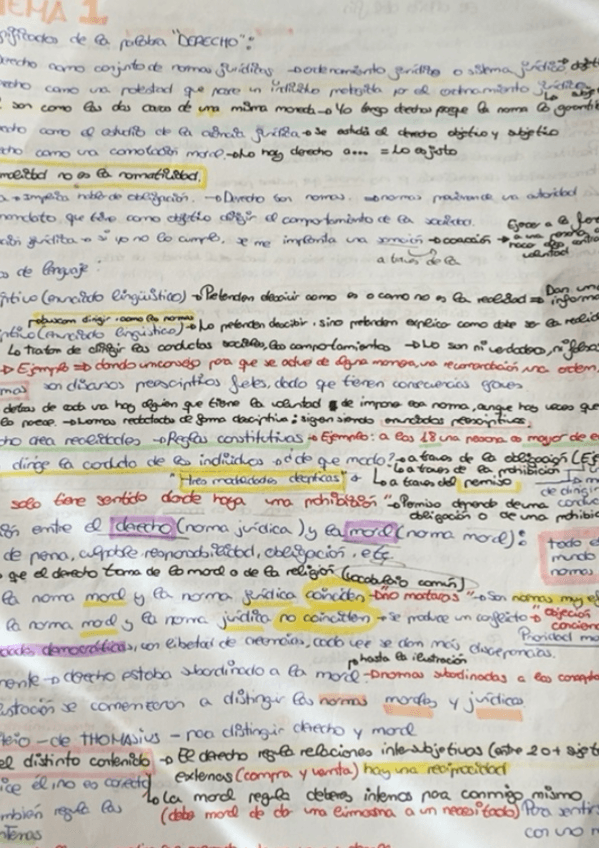 TEMA 1
significados de la palabra "DERECHO":
derecho como conjunto de normas jurídicas → ordenamiento jurídico o sistema jurídico
derecho como una potestad que posee un individuo protegida por el ordenamiento jurídico
son como las dos caras de una misma moneda → Yo tengo derechos porque la norma lo garantiza
derecho como el estudio de la ciencia jurídica → se estudia el derecho objetivo y subjetivo
derecho como una connotación moral → No hay derecho a... = No es justo
no es la normatividad.
implica hablar de obligación. → Derecho son normas. → normas provienen de una autoridad
mandato, que tiene como objetivo dirigir el comportamiento de la sociedad.
jurídica → si yo no lo cumplo, se me impondrá una sanción → coacción →
a través de la
Ejercer a la
una persona
hacer algo contra
voluntad
de lenguaje:
(enunciado lingüístico) → Pretenden describir como es o como no es la realidad ⇒ Dan una
informa
→ buscan dirigir, como las normas
(enunciado lingüístico) → No pretenden describir, sino pretenden explicar como debe ser la realidad
↳ tratan de dirigir las conductas sociales, los comportamientos → No son ni verdaderos, ni falsos
→ Ejemplo ⇒ dando un consejo para que se actúe de alguna manera, una recomendación, una orden.
son discursos prescriptivos fuertes, dado que tienen consecuencias graves
detrás de cada una hay alguien que tiene la voluntad de imponer esa norma, aunque hay veces que
lo parece. → Normas redactadas de forma descriptiva; siguen siendo enunciados prescriptivos.
crea realidades → Reglas constitutivas → Ejemplo: a los 18 una persona es mayor de
dirige la conducta de los individuos → ¿de que modo? → a través de la obligación (Ej
↳ a través de la prohibición
"tres modalidades deónticas" ↳ a través del permiso
de dirigir
solo tiene sentido donde haya una prohibición" → Permiso depende de una
obligación o de una prohibi
entre el derecho (norma jurídica) y la moral (norma moral):
todo el
mundo
normas
de pena, culpable, responsabilidad, obligación, etc
que el derecho toma de la moral o de la religión (vocabulario común)
la norma moral y la norma jurídica coinciden → "no matarás" → son normas muy
la norma moral y la norma jurídica no coinciden → se produce un conflicto → "objeción
concienc
Prioridad
democráticas, con libertad de creencias, cada vez se dan más discrepancias.
→ hasta la ilustración
mente → derecho estaba subordinado a la moral → normas subordinadas a los
ilustración se comenzaron a distinguir las normas morales y jurídicas
— de THOMASIUS — para distinguir derecho y moral
el distinto contenido → El derecho regula relaciones intersubjetivas (entre 2 o + sujetos
externas (compra y venta) hay una reciprocidad
dice él no es correcto
↳ La moral regula deberes internos para conmigo mismo
también regula las
(debe moral de dar una limosna a un necesitado) Para sentir
internas
con uno